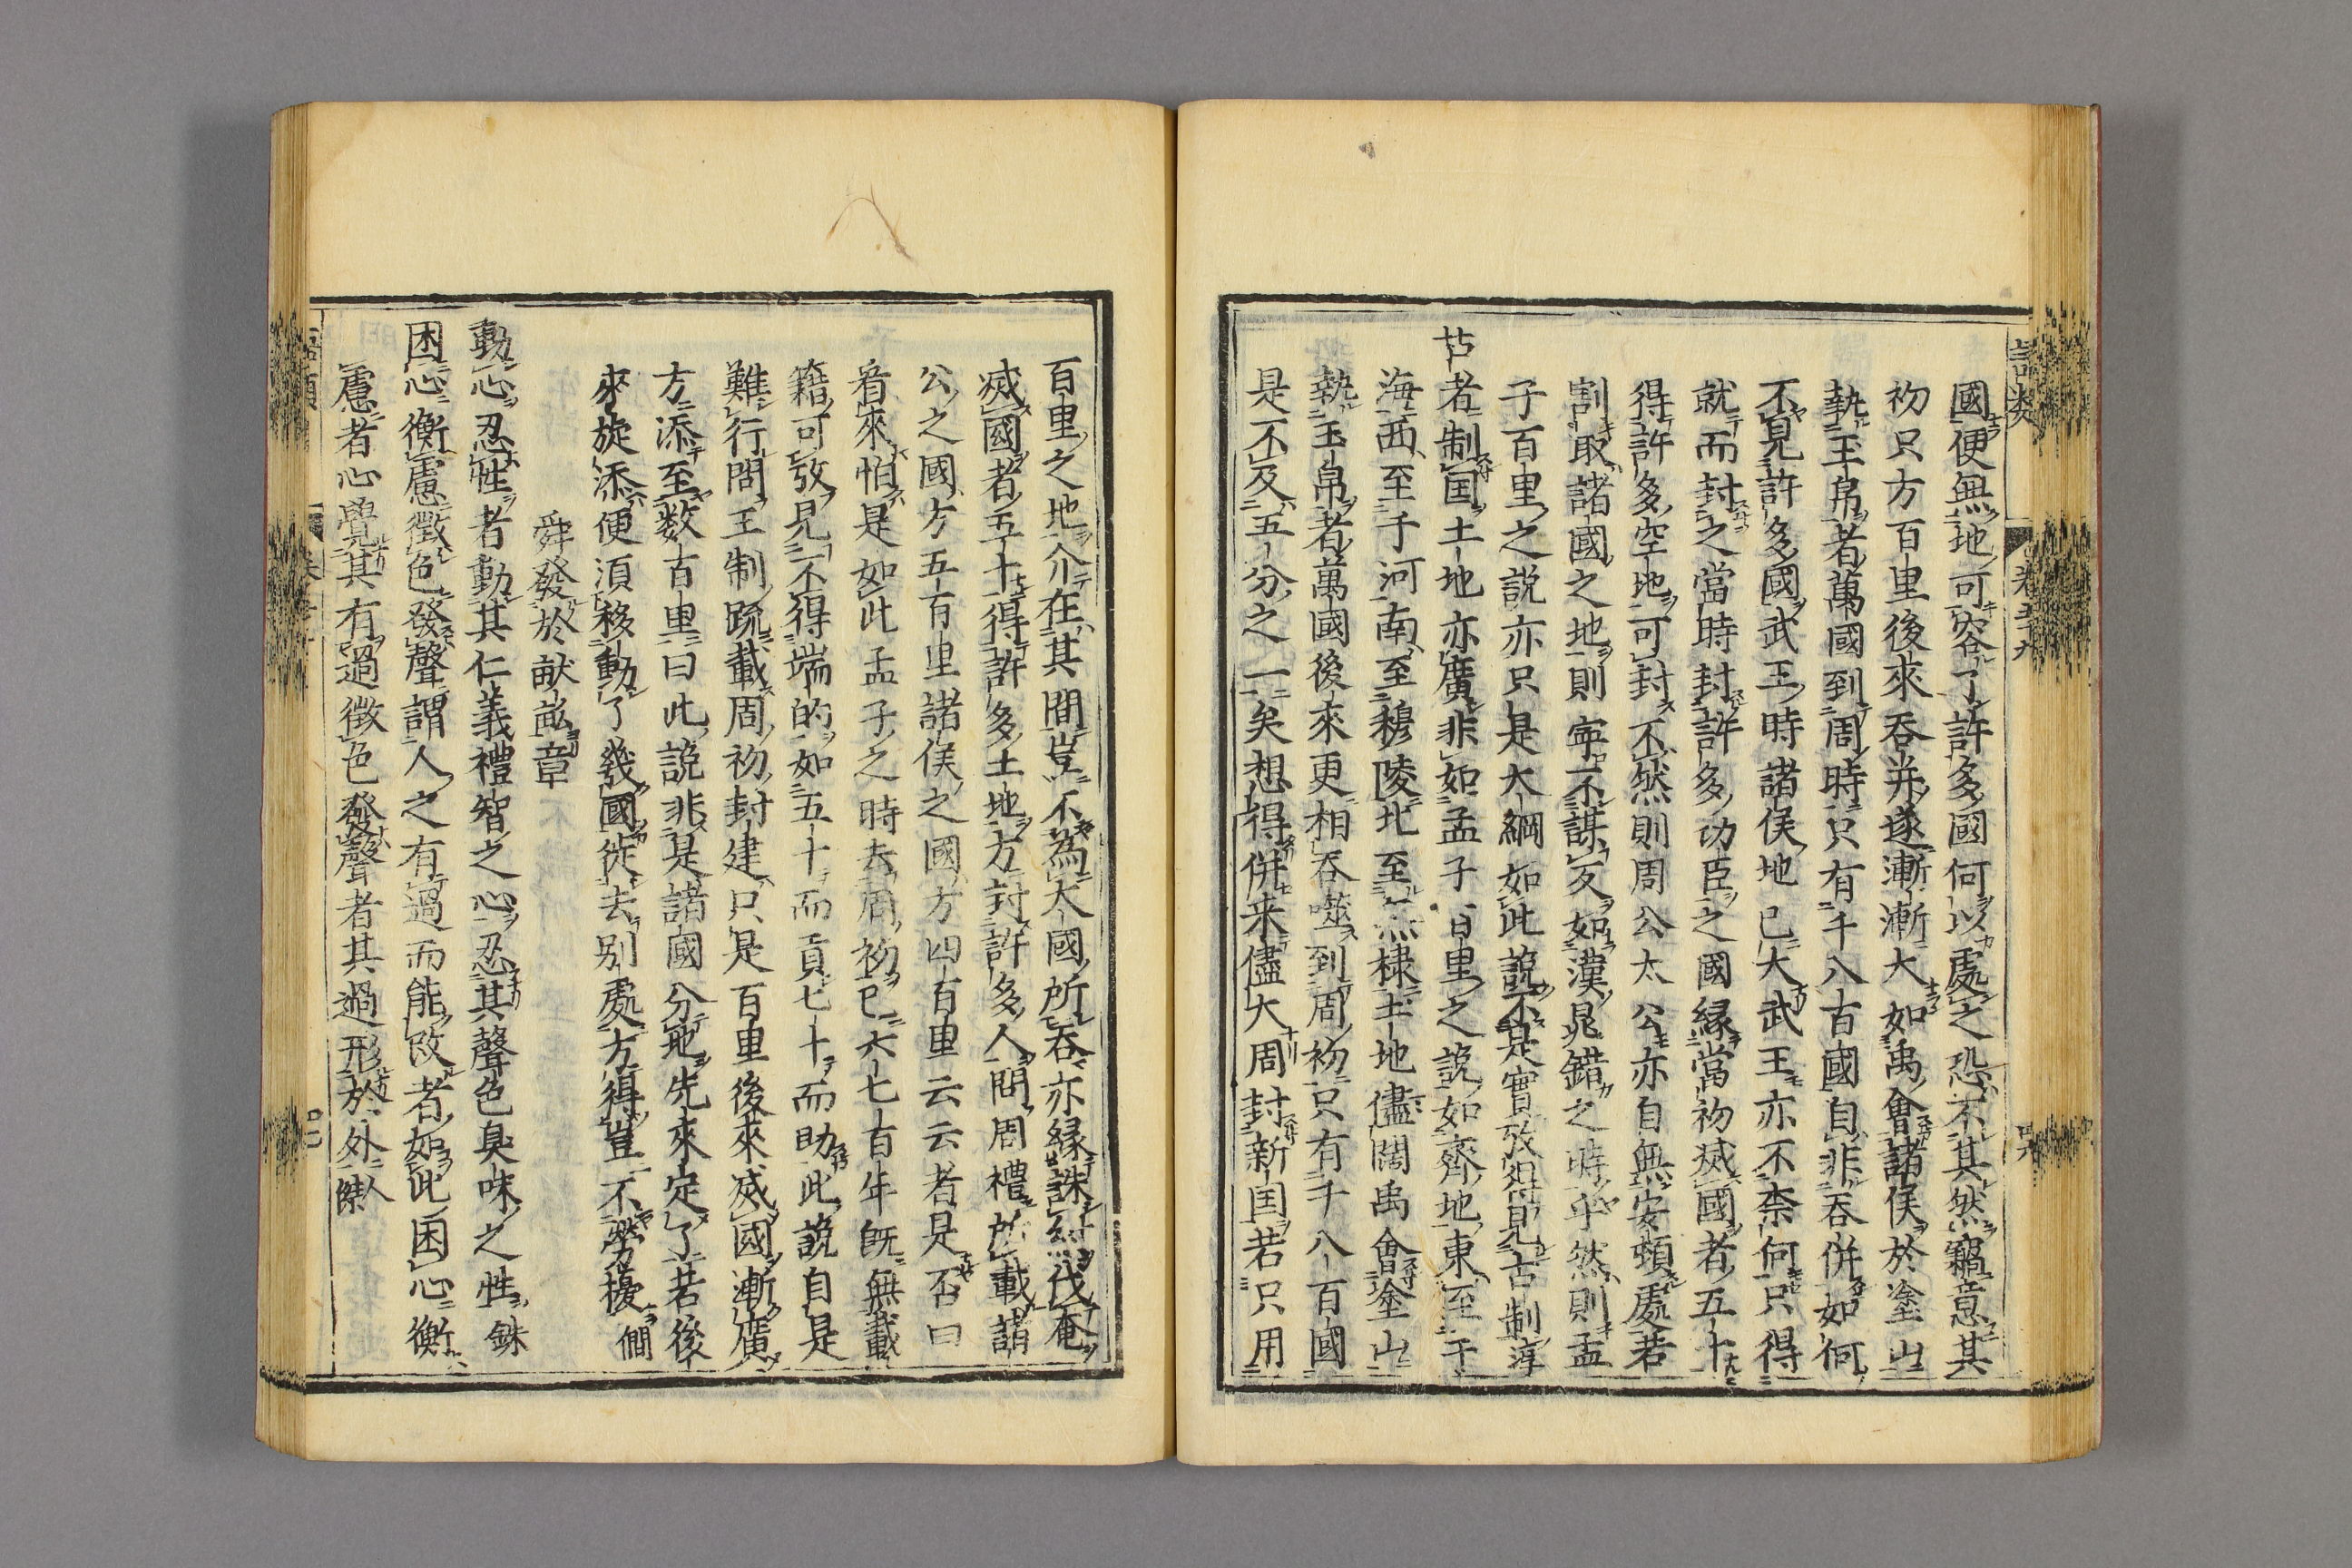 國便無地可容了許多國何以處之恐不其然竊意其
初只方百里後來吞并遂漸漸大如禹會諸侯於塗山
執玉帛者萬國到周時只有千八百國自非吞併如何
不見許多國武王時諸侯地已大武王亦不奈何只得
就而封之當時封許多功臣之國縁當初滅國者五十
得許多空地可封不然則周公太公亦自無安頓處若
割取諸國之地則寧不謀反如漢晁錯之時乎然則孟
子百里之説亦只是大綱如此說不是實攷得見古制淳
古者制国土地亦廣非如孟子百里之説如齊地東至于
海西至于河南至穆陵北至無棣土地儘闊禹會塗山
執玉帛者萬國後來更相吞噬到周初只有千八百國
是不及五分之一矣想得併来儘大周封新国若只用
百里之地介在其間豈不為大國所吞亦縁誅紂伐奄
滅國者五十得許多土地方封許多人問周禮所載諸
公之國方五百里諸侯之國方四百里云云者是否曰
看來怕是如此孟子之時去周初已六七百年既無載
籍可攷見不得端的如五十而貢七十而助此說自是
難行問王制疏載周初封建只是百里後來滅國漸廣
方添至数百里曰此說非是諸國分地先來定了若後
來旋添便須移動了幾國徙去別處方得豈不勞擾 僩
舜發於畎畝章
動心忍性者動其仁義禮智之心忍其聲色臭味之性 銖
困心衡慮徵色發聲謂人之有過而能改者如此困心衡
慮者心覺其有過徵色發聲者其過形於外 人傑